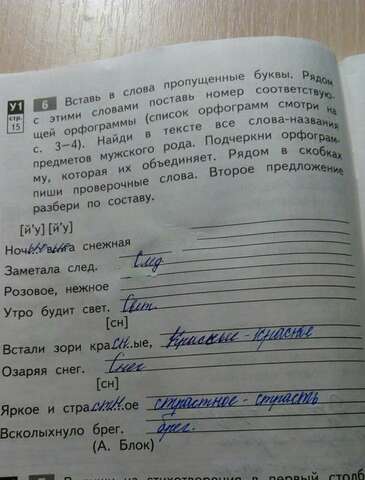 У1
стр. 15
6 Вставь в слова пропущенные буквы. Рядом
с этими словами поставь номер соответствую-
щей орфограммы (список орфограмм смотри на
с. 3—4). Найди в тексте все слова-названия
предметов мужского рода. Подчеркни орфограм-
му, которая их объединяет. Рядом в скобках
пиши проверочные слова. Второе предложение
разбери по составу.
[й'у] [й'у]
Ночью вьюга снежная
Заметала след. След
Розовое, нежное
Утро будит свет. Свет.
[сн]
Встали зори кра сн ые, Красные - красне
Озаряя снег. Снег
[сн]
Яркое и стра стн ое страстное - страсть
Всколыхнуло брег. брег.
(А. Блок)